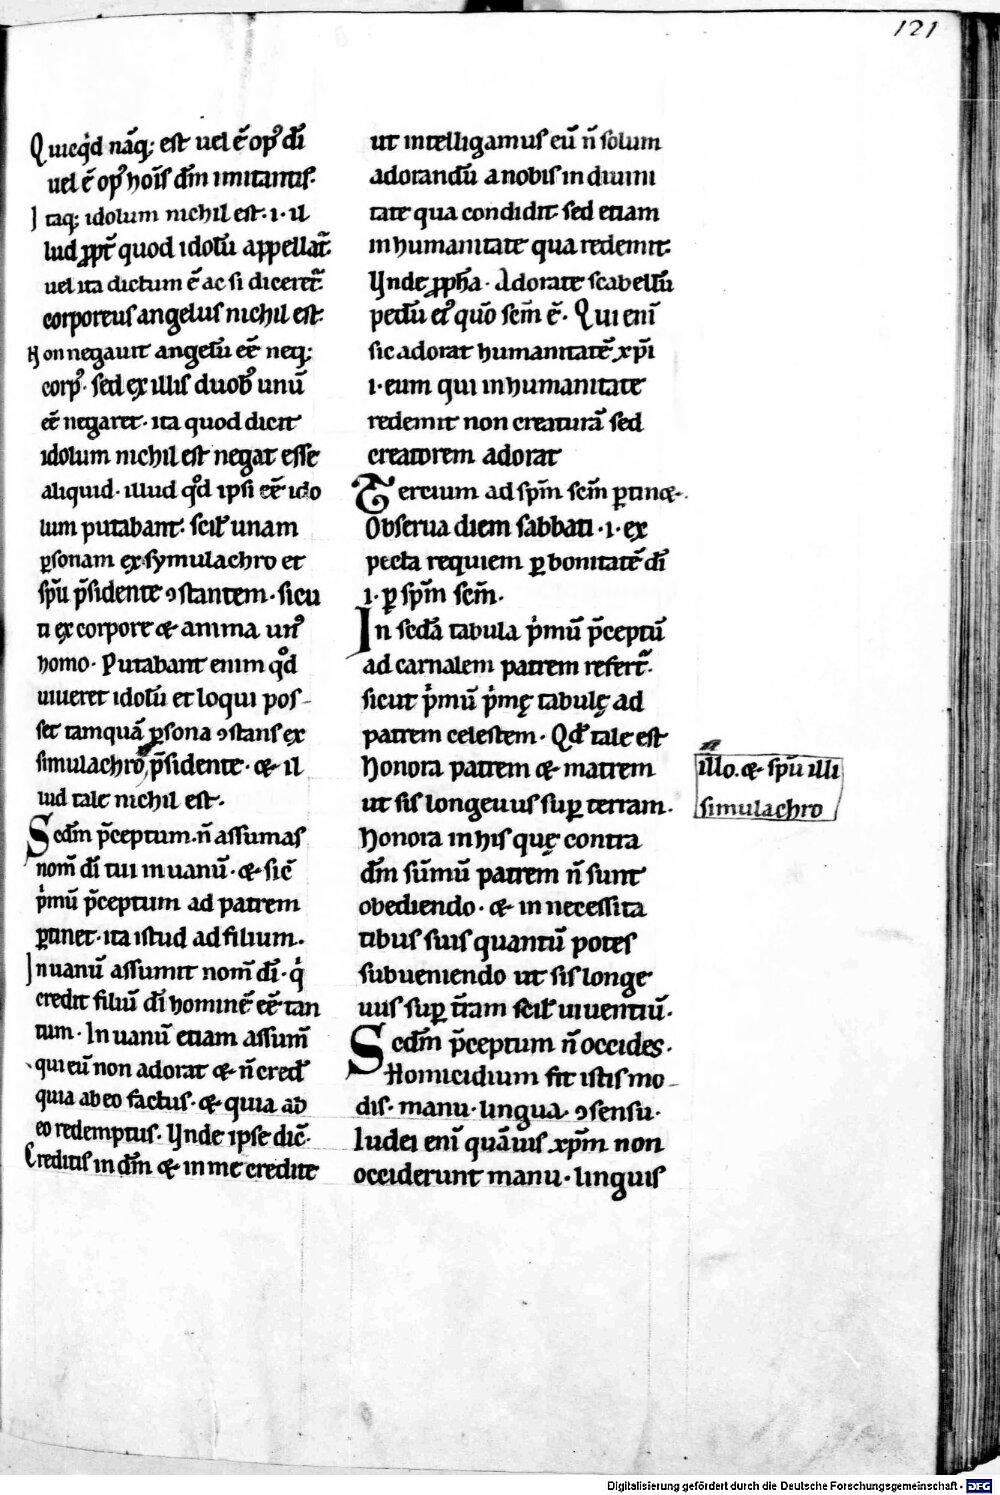 121
Quicq͛d nāq; est uel ē op᷒ dī
uel ē op᷒ hoīs dm̄ imitantis.
Itaq; idolum nichil est .i. il
lud ꝓpt̄ quod idolū appellat᷑.
uel ita dictum ē ac si diceret᷑.
corporeus angelus nichil est.
Non negauit angelū eē neq;
corp᷒. sed ex illis duob᷒ unū
eē negaret. ita quod dicit
idolum nichil est negat esse
aliquid. illud qͦd ipsi eē ido
lum putabant. scil̄ unam
ꝑsonam ex symulachro et
spū p̄sidente ꝯstantem. sicu
ti ex corpore & anima un᷒
homo. Putabant enim qͦd
uiueret idolū et loqui pos-
set tamquā ꝑsona ꝯstans ex
simulachro, p̄sidente. & il
lud tale nichil est.
Scdm̄ p̄ceptum. n̄ assumas
nom̄ dī tui in uanū. & sic̄
pͥmū p̄ceptum ad patrem
ꝑtinet. ita istud ad filium.
In uanū assumit nom̄ dī. qͥ
credit filiū dī hominē eē tan
tum. In uanū etiam assum̄
qui eū non adorat & n̄ cred̄
quia ab eo factus. & quia ab
eo redemptus. Vnde ipse dic̄.
Creditis in dm̄ & in me credite
ut intelligamus eū n̄ solum
adorandū a nobis in diuini
tate qua condidit. sed etiam
in humanitate qua redemit.
Vnde ꝓph̄a. Adorate scabellū
pedū ei᷒ quō scm̄ ē. Qui enī
sic adorat humanitatē xp̄i
.i. eum qui in humanitate
redemit non creaturā sed
creatorem adorat
Tercium ad spm̄ scm̄ ꝑtin&.
Obserua diem sabbati .i. ex
pecta requiem ꝑ bonitatē dī
.i. ꝑ spm̄ scm̄.
In scdā tabula pͥmū p̄ceptū
ad carnalem patrem refert᷑.
sicut pͥmū pͥmę tabulę ad
patrem celestem. Qd̄ tale est
Honora patrem & matrem
ut sis longeuus suꝑ terram.
Honora in his quę contra
dm̄ sūmū patrem n̄ sunt
obediendo. & in necessita
tibus suis quantū potes
subueniendo ut sis longe
uus suꝑ t̄ram scil̄ uiuentiū.
Scdm̄ p̄ceptum n̄ occides.
Homicidium fit istis mo-
dis. manu. lingua. ꝯsensu.
Iudei enī quāuis xp̄m non
occiderunt manu. linguis
illo. & spū illi
simulachro
Digitalisierung gefördert durch die Deutsche Forschungsgemeinschaft - DFG